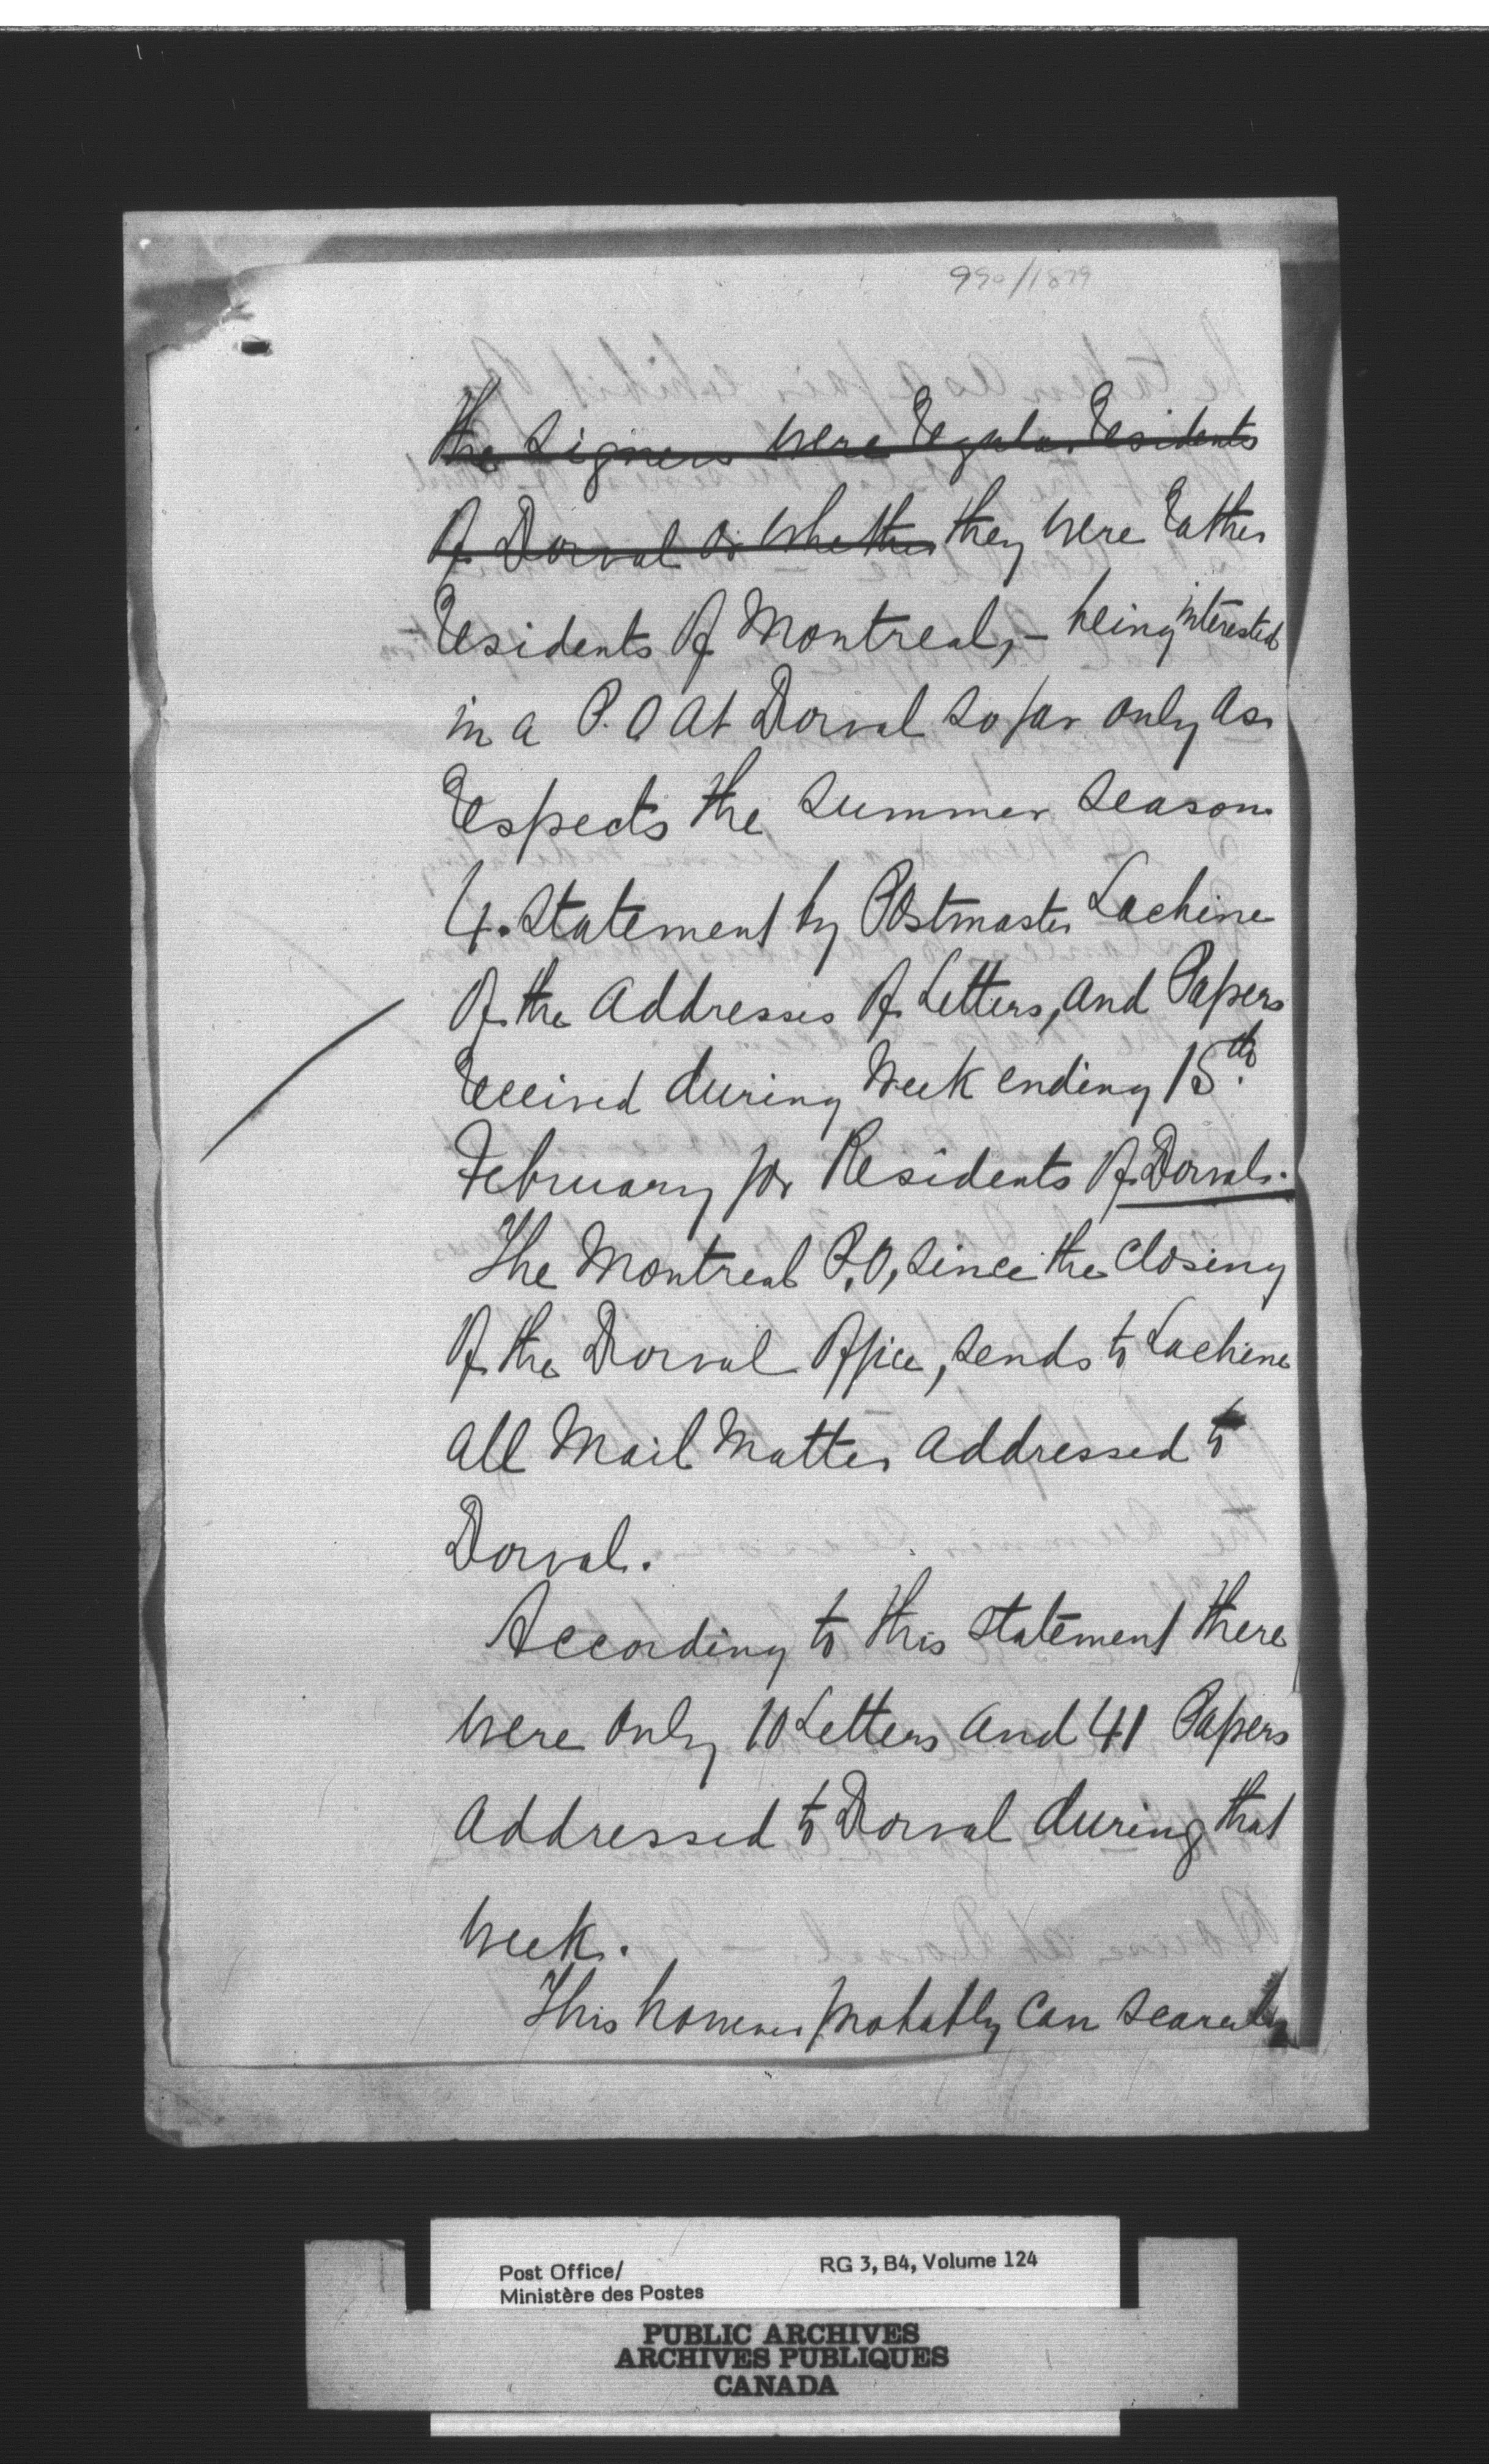 990/1879
the signers were regular residents
of Dorval or whether they were rather
residents of Montreal, – being interested
in a P.O at Dorval so far only as
respects the summer season
4. Statement by Postmaster Lachine
of the addresses of Letters, and Papers
received during week ending 15th
February for Residents of Dorval.
The Montreal P.O, since the closing
of the Dorval Office, sends to Lachine
all Mail Matter addressed to
Dorval.
According to this statement there
were only 10 Letters and 41 Papers
addressed to Dorval during that
week.
This however probably can scarcely
Post Office/
Ministère des Postes
RG 3, B4, Volume 124
PUBLIC ARCHIVES
ARCHIVES PUBLIQUES
CANADA